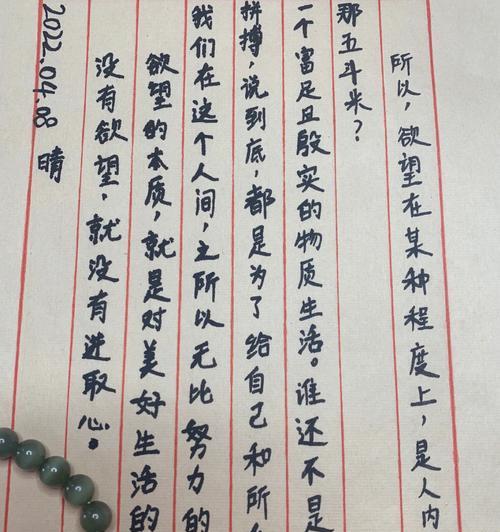 2022.04.08 晴
没有欲望，就没有进取心。
欲望的本质，就是对美好生活的
我们在这个人间，之所以无比努力的
拼搏，说到底，都是为了给自己和所
一个富足且殷实的物质生活。谁还不是
那五斗米？
所以，欲望在某种程度上，是人内